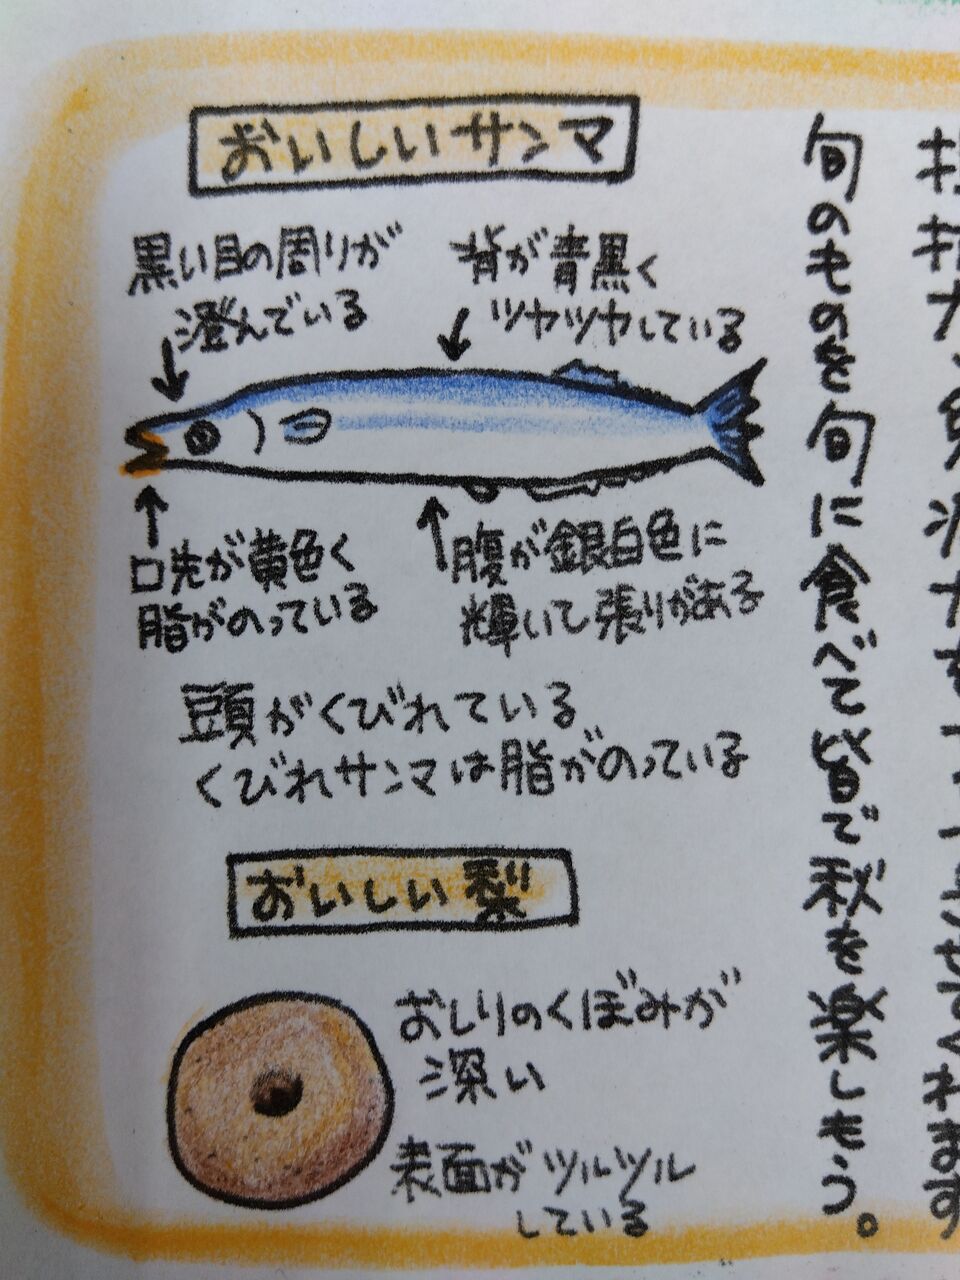 おいしいサンマ
黒い目の周りが
澄んでいる
背が青黒く
ツヤツヤしている
口先が黄色く
脂がのっている
腹が銀白色に
輝いて張りがある
頭がくびれている
くびれサンマは脂がのっている
おいしい梨
おしりのくぼみが
深い
表面がツルツル
している
旬のものを旬に食べて皆で秋を楽しもう。